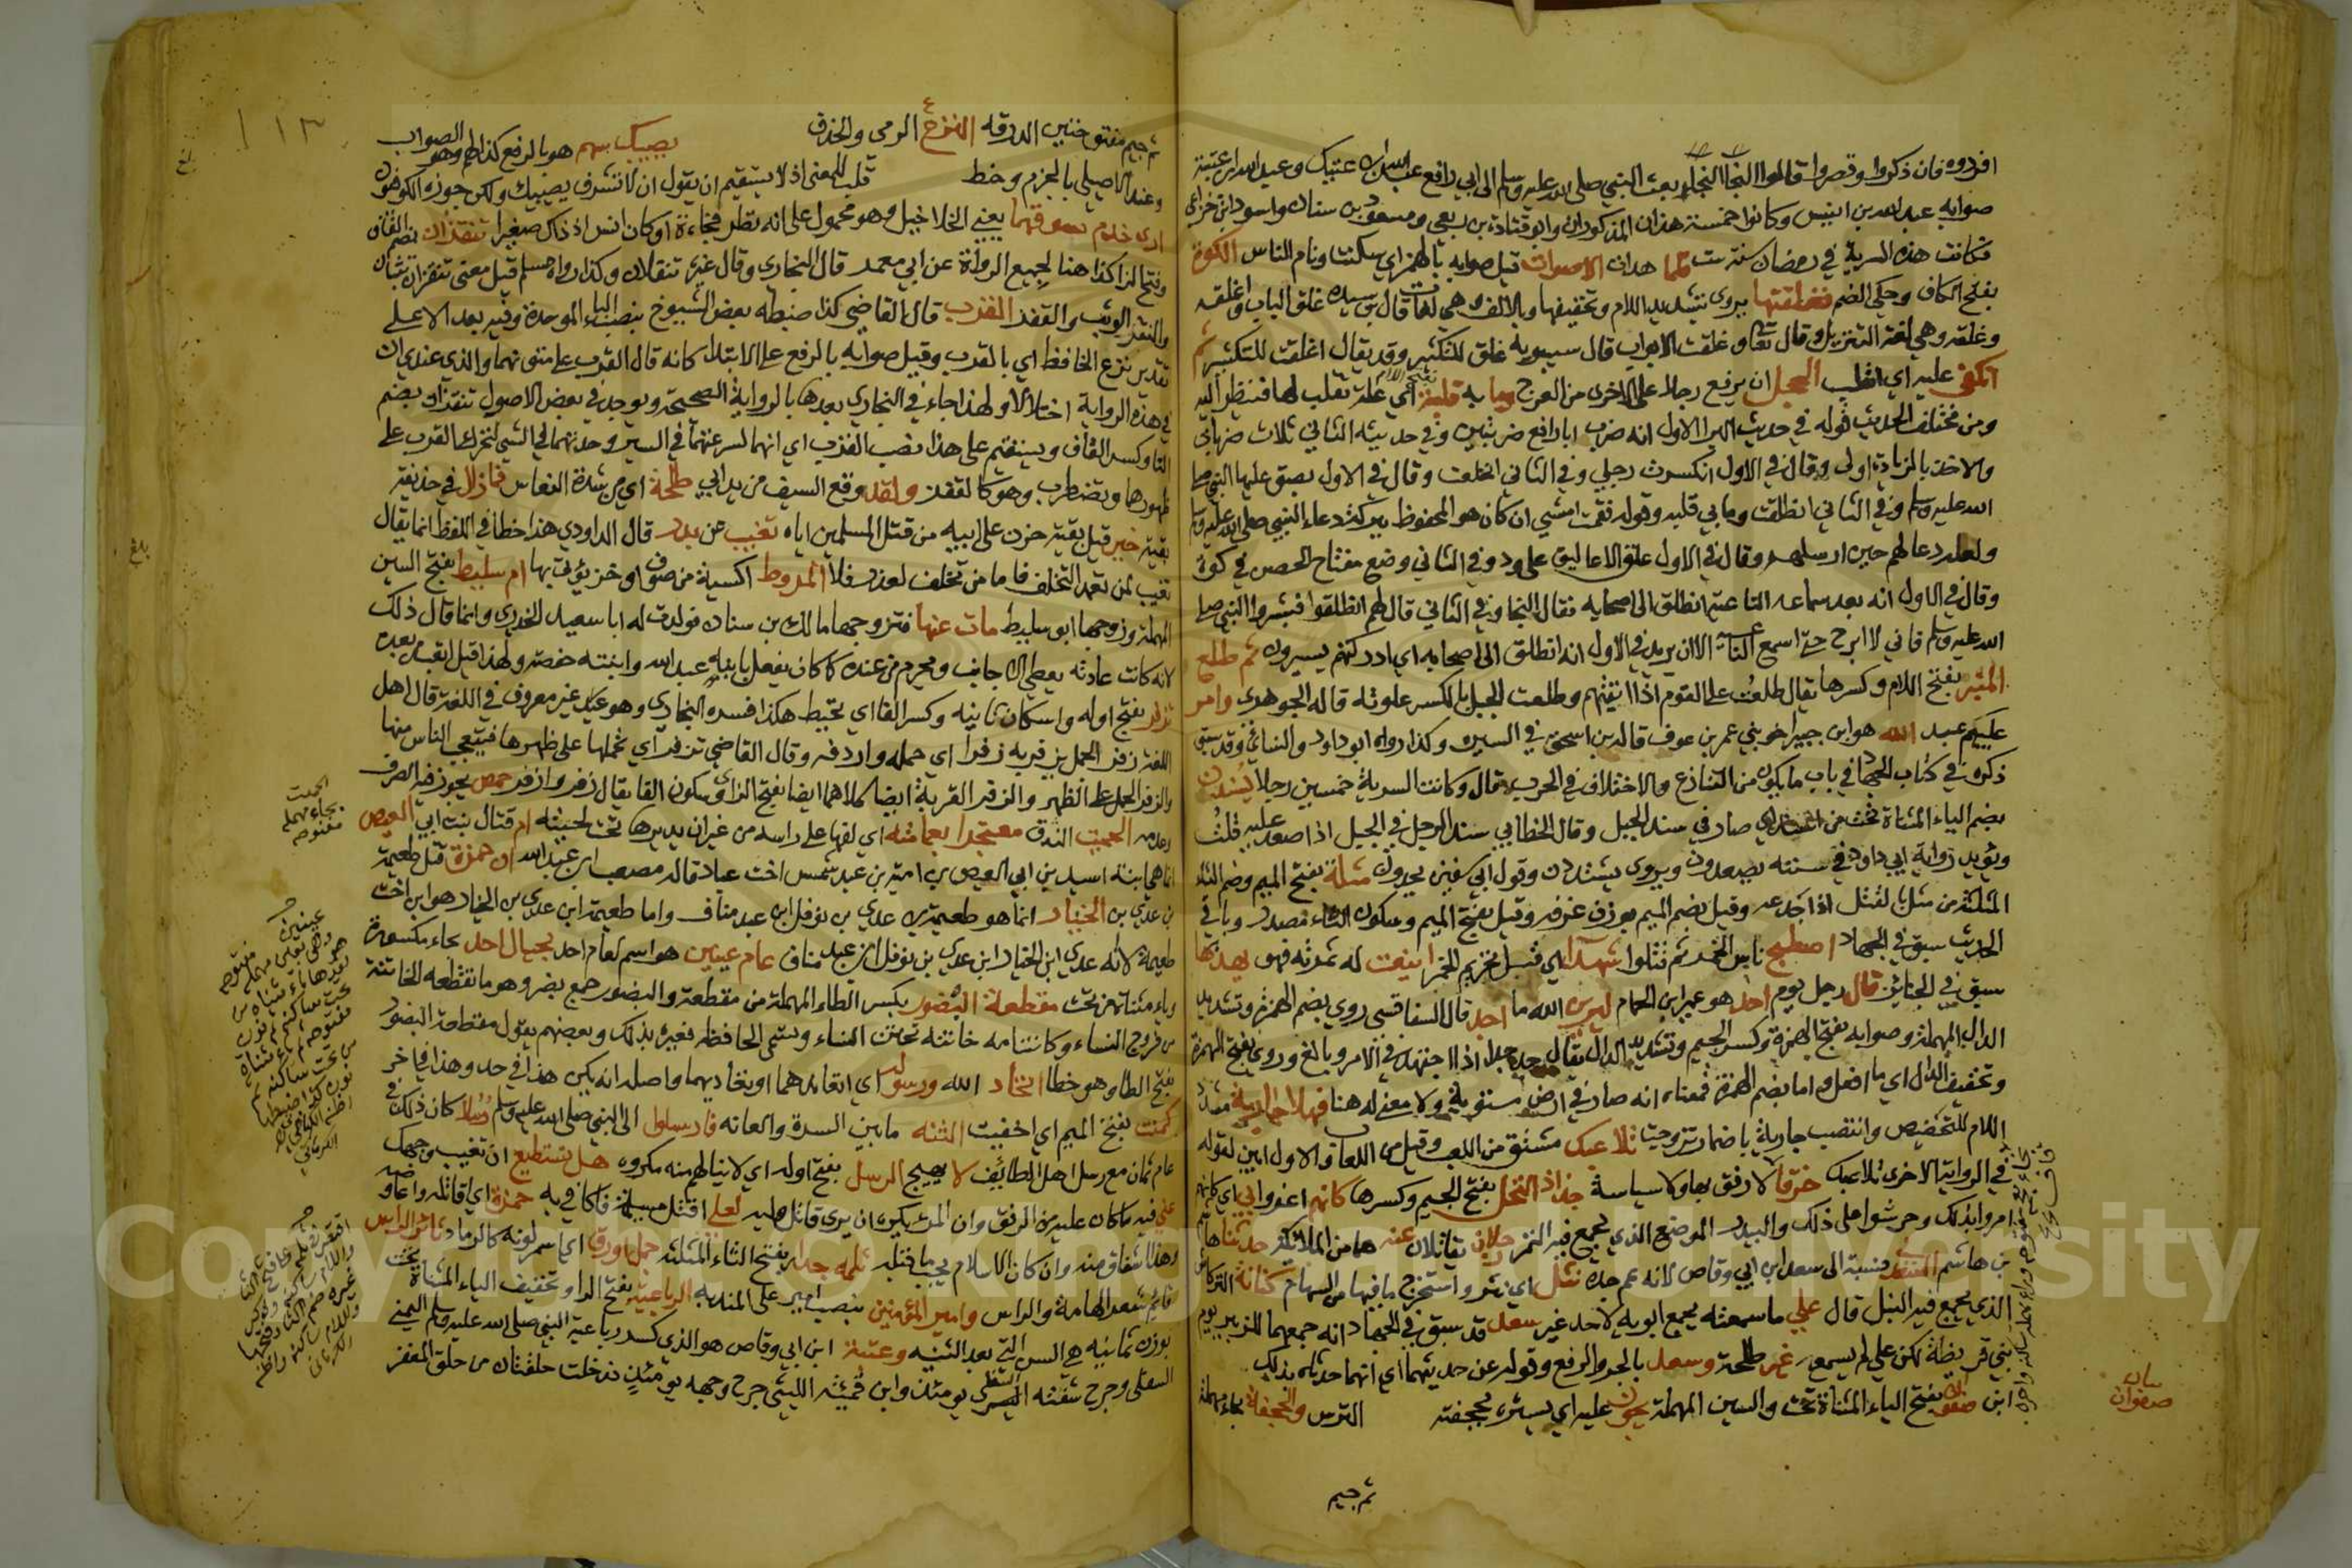 افردوه فان ذكروا وقصروا قالوا النجا النجا بعث النبي صلى الله عليه وسلم الى ابي رافع عبد الله بن عتيك وعبد الله بن عتبة
صوابه عبد الله بن انيس وكانوا خمسة هذان المذكوران وابو قتادة بن ربعي ومسعود بن سنان واسود ابن خزاعي
فكانت هذه السرية في رمضان سنة ست فلما هدات الاصوات قيل صوابه بالهمز اي سكنت ونام الناس الكوة
بفتح الكاف وحكي الضم فغلقتها يروى بتشديد اللام وتخفيفها وبالالف هي لغات قال بن سيده غلق الباب واغلقه
وغلقه وهي لغة التنزيل وقال تعالى وغلقت الابواب قال سيبويه غلق للتكثير وقد يقال اغلقت للتكثير ثم
انكفي عليه اي انقلب الحجل ان يرفع رجلا على الاخرى من العرج وما به قلبة اي علة تقلب لها فتنظر اليه
ومن مختلف الحديث قوله في حديث البرا الاول انه ضرب ابا رافع ضربتين وفي حديثه الثاني ثلاث ضربات
والاخذ بالزيادة اولى وقال في الاول انكسرت رجلي وفي الثاني انخلعت وقال في الاول بصق عليها النبي صلى
الله عليه وسلم وفي الثاني انطلقت وما بي قلبة وقوله فقمت امشي ان كان هو المحفوظ ببركة دعاء النبي صلى الله عليه وسلم
ولعله دعا لهم حين ارسلهم وقال في الاول علق الاغاليق على ود وفي الثاني وضع مفتاح الحصن في كوة
وقال في الاول انه بعد سماعه الناعية انطلق الى اصحابه فقال النجا وفي الثاني قال لهم انطلقوا فبشروا النبي صلى
الله عليه وسلم فاني لا ابرح حتى اسمع الناعية الا ان يريد في الاول انه انطلق الى اصحابه اي ادركتهم يسيرون ثم طلع
المنبر بفتح اللام وكسرها يقال طلعت على القوم اذا اتيتهم وطلعت الجبل بالكسر علوته قاله الجوهري وامر
عليهم عبد الله هو ابن جبير اخو بني عمر بن عوف قاله بن اسحق في السيرة وكذا رواه ابو داود والنسائي وقد سبق
ذكره في كتاب الجهاد في باب ما يكون من التنازع والاختلاف في الحرب وقال وكانت السرية خمسين رجلا يسندن
بضم الياء المثناة تحت من اسند اي صار في سند الجبل وقال الخطابي سند الرجل في الجبل اذا صعد عليه قلت
ويؤيد رواية ابي داود في سننه يصعدون ويروى يشتددن وقول ابي سفين يجدون مثلة بفتح الميم وضم الثاء
المثلثة من مثل بالقتل اذا جدعه وقيل بضم الميم بوزن غرفة وقيل بفتح الميم وسكون الثاء مصدر وباقي
الحديث سبق في الجهاد اصطبح ناس الخمر ثم قتلوا شهداء اي قبل تحريم الخمر اينعت له ثمرته فهو يهدبها
سبق في الجنائز قال رجل يوم احد هو عمير ابن الحمام ليرين الله ما اجد قال السفاقسي روي بضم الهمزة وتشديد
الدال المهملة وصوابه بفتح الهمزة وكسر الجيم وتشديد الدال يقال جد يجد اذا اجتهد في الامر وبالغ وروي بفتح الهمزة
وتخفيف الدال اي ما افعل واما بضم الهمزة فمعناه انه صار في ارض مستوية ولا معنى له هنا فهلا جارية مشدد
اللام للتخضيض وانتصب جارية باضمار تزوجت تلاعبك مشتق من اللعب وقيل من اللعاب والاول ابين لقوله
في الرواية الاخرى تلاعبك خرقا لا رفق بها ولا سياسة جذاذ النخل بفتح الجيم وكسرها كانهم اغروا بي اي كانهم
امروا بذلك وحرشوا على ذلك والبيدر الموضع الذي يجمع فيه التمر رجلان يقاتلان عنه هما من الملائكة حدثنا هاشم
بن هاشم السعدي نسبة الى سعد بن ابي وقاص لانه عم جده نثل اي نثر واستخرج ما فيها من السهام كنانة التركاش
الذي يجمع فيه النبل قال علي ما سمعته يجمع ابويه لاحد غير سعد قد سبق في الجهاد انه جمعهما للزبير يوم
بني قريظة لكن علي لم يسمع غير طلحة وسعد بالجر والرفع وقوله عن حديثهما اي انهما حدثاه بذلك
ابن صفوان بفتح الياء المثناة تحت والسين المهملة يجوب عليه اي يستره بحجفته الترس والحجفة بحاء مهملة
سان
صفوان
ثم جيم
ثم جيم مفتوحتين الدرقة النزع الرمي والحذف يصيبك سهم هو بالرفع كذا لهم وهو الصواب
وعند الاصيلي بالجزم وخط قلب للمعنى اذ لا يستقيم ان يقول ان لا تشرف يصيبك ولكن جوزه الكوفيون
ارى خدم سوقهما يعني الخلاخيل وهو محمول على انه نظر فجاءة او كان انس اذ ذاك صغيرا تنقزان بضم القاف
وفتح الزا كذا هنا لجميع الرواة عن ابي معمر قال البخاري وقال غيره تنقلان وكذا رواه مسلم قيل معنى تنقزان تثبان
والنقز الوثب والقفز القرب قال القاضي كذا ضبطه بعض الشيوخ بنصب الباء الموحدة وفيه بعد الا على
تقدير نزع الخافض اي بالقرب وقيل صوابه بالرفع على الابتداء كانه قال القرب على متونهما والذي عندي ان
في هذه الرواية اختلالا ولهذا جاء في البخاري بعدها بالرواية الصحيحة ويوجد في بعض الاصول تنقزان بضم
التا وكسر القاف ويستقيم على هذا نصب القرب اي انهما لسرعتهما في السير وحدتهما في المشي تحرك القرب على
ظهورها وتضطرب وهو كالقفز ولقد وقع السيف من يد ابي طلحة اي من شدة النعاس فما زال في حذيفة
بقية خير قيل بقية حزن على ابيه من قتل المسلمين اياه تغيب عن بدر قال الداودي هذا خطا في اللفظ انما يقال
تغيب لمن تعمد التخلف فاما من تخلف لعذر فلا المروط اكسية من صوف او خز يؤتزر بها ام سليط بفتح السين
المهملة وزوجها ابو سليط مات عنها فتزوجها مالك بن سنان فولدت له ابا سعيد الخدري وانما قال ذلك
لانه كانت عادته يعطي الاجانب ويحرم من عنده كما كان يفعل بابنه عبد الله وابنته حفصة ولهذا قيل اتعب من بعده
تزفر بفتح اوله واسكان ثانيه وكسر الفا اي تخيط هكذا فسره البخاري وهو غير معروف في اللغة قال اهل
اللغة زفر الحمل يزفر به زفرا اي حمله وازدفر وقال القاضي تزفر اي تحملها على ظهرها فيتعجب الناس منها
والزفر الحمل على الظهر والزفر القربة ايضا كلاهما ايضا بفتح الزاى وسكون الفا يقال زفر وازفر حمص يجوز فيه الصرف
وعدمه الحميت الزق معتجرا بعمامته اي لفها على راسه من غير ان يديرها تحت لحيته ام قتال بنت ابي العيص
انما هي ابنة اسيد بن ابي العيص بن امية بن عبد شمس اخت عباد قاله مصعب ابن عبد الله ان حمزة قتل طعيمة
بن عدي بن الخيار انما هو طعيمة بن عدي بن نوفل ابن عبد مناف واما طعيمة ابن عدي بن الخيار هو ابن اخت
طعيمة لانه عدي ابن الخيار ابن عدي بن نوفل ابن عبد مناف عام عينين هو اسم لعام احد بحيال احد بحاء مكسورة
وياء مثناة من تحت مقطعة البضور بكسر الطاء المهملة من مقطعة والبضور جمع بضر وهو ما تقطعه الخاتنة
من فروج النساء وكانت امه خاتنة تختن النساء وتسمى الخافضة فعيره بذلك وبعضهم يقول مقطعة البضور
بفتح الطا وهو خطا اتحاد الله ورسوله اي اتعاندهما او تعاديهما واصله ان يكون هذا في حد وهذا في اخر
كمنت بفتح الميم اي اخفيت الثنه ما بين السرة والعانة فارسلوا الى النبي صلى الله عليه وسلم رسلا كان ذلك في
عام ثمان مع رسل اهل الطائف لا يهيج الرسل بفتح اوله اي لا ينالهم منه مكروه هل تستطيع ان تغيب وجهك
عني فيه ما كان عليه من الرفق وان المرء يكره ان يرى قاتل وليه لعلي اقتل مسيلمة فاكافي به حمزة اي اقاتله
وهذا اشفاق منه وان كان الاسلام يجب ما قبله ثلمة جدار بفتح الثاء المثلثة جمل اورق اي اسمر لونه كالرماد ثائر الراس
قائم شعر الهامة والراس وامير المؤمنين بنصب امير على الندبة الرباعية بفتح الرا وتخفيف الياء المثناة تحت
بوزن ثمانية هي السن التي بعد الثنية وعتبة ابن ابي وقاص هو الذي كسر رباعية النبي صلى الله عليه وسلم اليمنى
السفلى وجرح شفته السفلى يومئذ وابن قميئة الليثي جرح وجهه يومئذ فدخلت حلقتان من حلق المغفر
الحميت
بحاء مهملة
مفتوحة